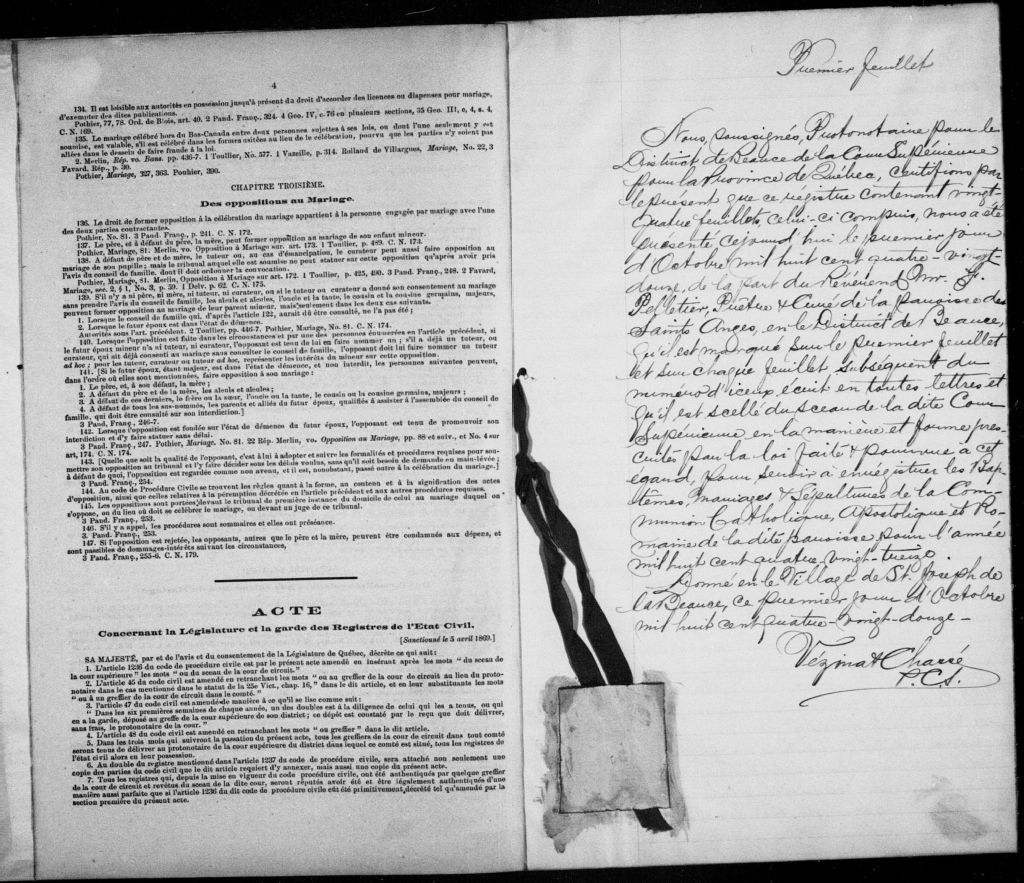 4
134. Il est loisible aux autorités en possession jusqu'à présent du droit d'accorder des licences ou dispenses pour mariage,
d'exempter des dites publications.
Pothier, 77, 78. Ord. de Blois, art. 40. 2 Pand. Franç., 324. 4 Geo. IV, c. 76 en plusieurs sections, 35 Geo. III, c. 4, s. 4,
C. N. 169.
135. Le mariage célébré hors du Bas-Canada entre deux personnes sujettes à ses lois, ou dont l'une seulement y est
soumise, est valable, s'il est célébré dans les formes usitées au lieu de la célébration, pourvu que les parties n'y soient pas
allées dans le dessein de faire fraude à la loi.
2. Merlin, Rép. vo. Bans. pp. 436-7. 1 Toullier, No. 577. 1 Vazeille, p. 314. Rolland de Villargues, Mariage, No. 22, 3
Favard. Rép., p. 30.
Pothier, Mariage, 327, 363. Pouhier, 390.
CHAPITRE TROISIÈME.
Des oppositions au Mariage.
136. Le droit de former opposition à la célébration du mariage appartient à la personne engagée par mariage avec l'une
des deux parties contractantes.
Pothier, No. 81. 3 Pand. Franç., p. 241. C. N. 172.
137. Le père, et à défaut du père, la mère, peut former opposition au mariage de son enfant mineur.
Pothier, Mariage, 81. Merlin, vo. Opposition à Mariage sur. art. 173. 1 Toullier, p. 489. C. N. 173.
138. A défaut de père et de mère, le tuteur, ou, au cas d'émancipation, le curateur peut aussi faire opposition au
mariage de son pupille; mais le tribunal auquel elle est soumise ne peut statuer sur cette opposition qu'après avoir pris
l'avis du conseil de famille, dont il doit ordonner la convocation.
Pothier, Mariage, 81. Merlin, Opposition à Mariage sur art. 172. 1 Toullier, p. 425, 490. 3 Pand. Franç., 248. 2 Favard,
Mariage, sec. 2, § 1, No. 3, p. 59. 1 Delv. p. 62. C. N. 175.
139. S'il n'y a ni père, ni mère, ni tuteur, ni curateur, ou si le tuteur ou curateur a donné son consentement au mariage
sans prendre l'avis du conseil de famille, les aïeuls et aïeules, l'oncle et la tante, le cousin et la cousine germains, majeurs,
peuvent former opposition au mariage de leur parent mineur, mais seulement dans les deux cas suivants:
1. Lorsque le conseil de famille qui, d'après l'article 122, aurait dû être consulté, ne l'a pas été;
2. Lorsque le futur époux est dans l'état de démence.
Autorités sous l'art. précédent. 2 Toullier, pp. 416-7. Pothier, Mariage, No. 81. C. N. 174.
140. Lorsque l'opposition est faite dans les circonstances et par une des personnes énumérées en l'article précédent, si
le futur époux mineur n'a ni tuteur, ni curateur, l'opposant est tenu de lui en faire nommer un; s'il a déjà un tuteur, ou
curateur, qui ait déjà consenti au mariage sans consulter le conseil de famille, l'opposant doit lui faire nommer un tuteur
ad hoc; pour les tuteur, curateur ou tuteur ad hoc, représenter les intérêts du mineur sur cette opposition.
141. [Si le futur époux, étant majeur, est dans l'état de démence, et non interdit, les personnes suivantes peuvent,
dans l'ordre où elles sont mentionnées, faire opposition à son mariage:
1. Le père, et, à son défaut, la mère;
2. A défaut du père et de la mère, les aïeuls et aïeules;
3. A défaut de ces derniers, le frère ou la sœur, l'oncle ou la tante, le cousin ou la cousine germains, majeurs;
4. A défaut de tous les sus-nommés, les parents et alliés du futur époux, qualifiés à assister à l'assemblée du conseil de
famille, qui doit être consulté sur son interdiction.]
3 Pand. Franç., 246-7.
142. Lorsque l'opposition est fondée sur l'état de démence du futur époux, l'opposant est tenu de promouvoir son
interdiction et d'y faire statuer sans délai.
3 Pand. Franç., 247. Pothier, Mariage. No. 81. 22 Rép. Merlin, vo. Opposition au Mariage, pp. 88 et suiv., et No. 4 sur
art, 174. C. N. 174.
143. [Quelle que soit la qualité de l'opposant, c'est à lui à adopter et suivre les formalités et procédures requises pour sou-
mettre son opposition au tribunal et l'y faire décider sous les délais voulus, sans qu'il soit besoin de demande en main-levée;
à défaut de quoi, l'opposition est regardée comme non avenu, et il est, nonobstant, passé outre à la célébration du mariage.]
3 Pand. Franç., 254.
144. Au code de Procédure Civile se trouvent les règles quant à la forme, au contenu et à la signification des actes
d'opposition, ainsi que celles relatives à la péremption décrétée en l'article précédent et aux autres procédures requises.
145. Les oppositions sont portées devant le tribunal de première instance du domicile de celui au mariage duquel on
s'oppose, ou du lieu où doit se célébrer le mariage, ou devant un juge de ce tribunal.
3 Pand. Franç., 253.
146. S'il y a appel, les procédures sont sommaires et elles ont préséance.
3. Pand. Franç., 253.
147. Si l'opposition est rejetée, les opposants, autres que le père et la mère, peuvent être condamnés aux dépens, et
sont passibles de dommages-intérêts suivant les circonstances,
3 Pand. Franç., 255-6. C. N. 179.
ACTE
Concernant la Législature et la garde des Registres de l'Etat Civil.
[Sanctionné le 5 avril 1869.]
SA MAJESTÉ, par et de l'avis et du consentement de la Législature de Québec, décrète ce qui suit:
1. L'article 1236 du code de procédure civile est par le présent acte amendé en insérant après les mots " du sceau de
la cour supérieure " les mots " ou du sceau de la cour de circuit."
2. L'article 45 du code civil est amendé en retranchant les mots " ou au greffier de la cour de circuit au lieu du proto-
notaire dans le cas mentionné dans le statut de la 25e Vict., chap. 16, " dans le dit article, et en leur substituants les mots
" ou à un greffier de la cour de circuit dans le comté."
3. l'article 47 du code civil est amendé de manière à ce qu'il se lise comme suit:
" Dans les six premières semaines de chaque année, un des doubles est à la diligence de celui qui les a tenus, ou qui
en a la garde, déposé au greffe de la cour supérieure de son district; ce dépôt est constaté par le reçu que doit délivrer,
sans frais, le protonotaire de la cour. "
4. L'article 48 du code civil est amendé en retranchant les mots " ou greffier " dans le dit article.
5. Dans les trois mois qui suivront la passation du présent acte, tous les greffiers de la cour de circuit dans tout comté
seront tenus de délivrer au protonotaire de la cour supérieure du district dans lequel ce comté est situé, tous les registres de
l'état civil alors en leur possession.
6. Au double du registre mentionné dans l'article 1237 du code de procédure civile, sera attaché non seulement une
copie des parties du code civil que le dit article requiert d'y annexer, mais aussi une copie du présent acte.
7. Tous les registres qui, depuis la mise en vigueur du code procédure civile, ont été authentiqués par quelque greffier
de la cour de circuit et revêtus du sceau de la dite cour, seront réputés avoir été et être légalement authentiqués d'une
manière aussi parfaite que si l'article 1236 du dit code de procédure civile eût été primitivement décrété tel qu'amendé par la
section première du présent acte.
Premier feuillet
Nous, soussignés, Protonotaire pour le
District de Beauce de la Cour Supérieure
pour la Province de Québec, certifions par
le présent que ce régistre contenant vingt-
quatre feuillets, celui-ci compris, nous a été
présenté ce jourd'hui le premier jour
d'Octobre mil huit cent quatre-vingt-
douze, de la part du Révérend Mr. F.
Pelletier, Prêtre & Curé de la paroisse des
Saints Anges, en le District de Beauce,
qu'il est marqué sur le premier feuillet
et sur chaque feuillet subséquent du
numéro d'iceux écrit en toutes lettres et
qu'il est scellé du sceau de la dite Cour
Supérieure en la manière et forme pres-
crites par la loi faite & pourvue à cet
égard, pour servir à enregistrer les Bap-
têmes, Mariages & Sépultures de la Com-
munion Catholique, Apostolique et Ro-
maine de la dite paroisse pour l'année
mil huit cent quatre vingt-treize.
Donné en le Village de St. Joseph de
la Beauce, ce premier jour d'Octobre
mil huit cent quatre-vingt-douze-
Vézina & Chassé
P.C.S.